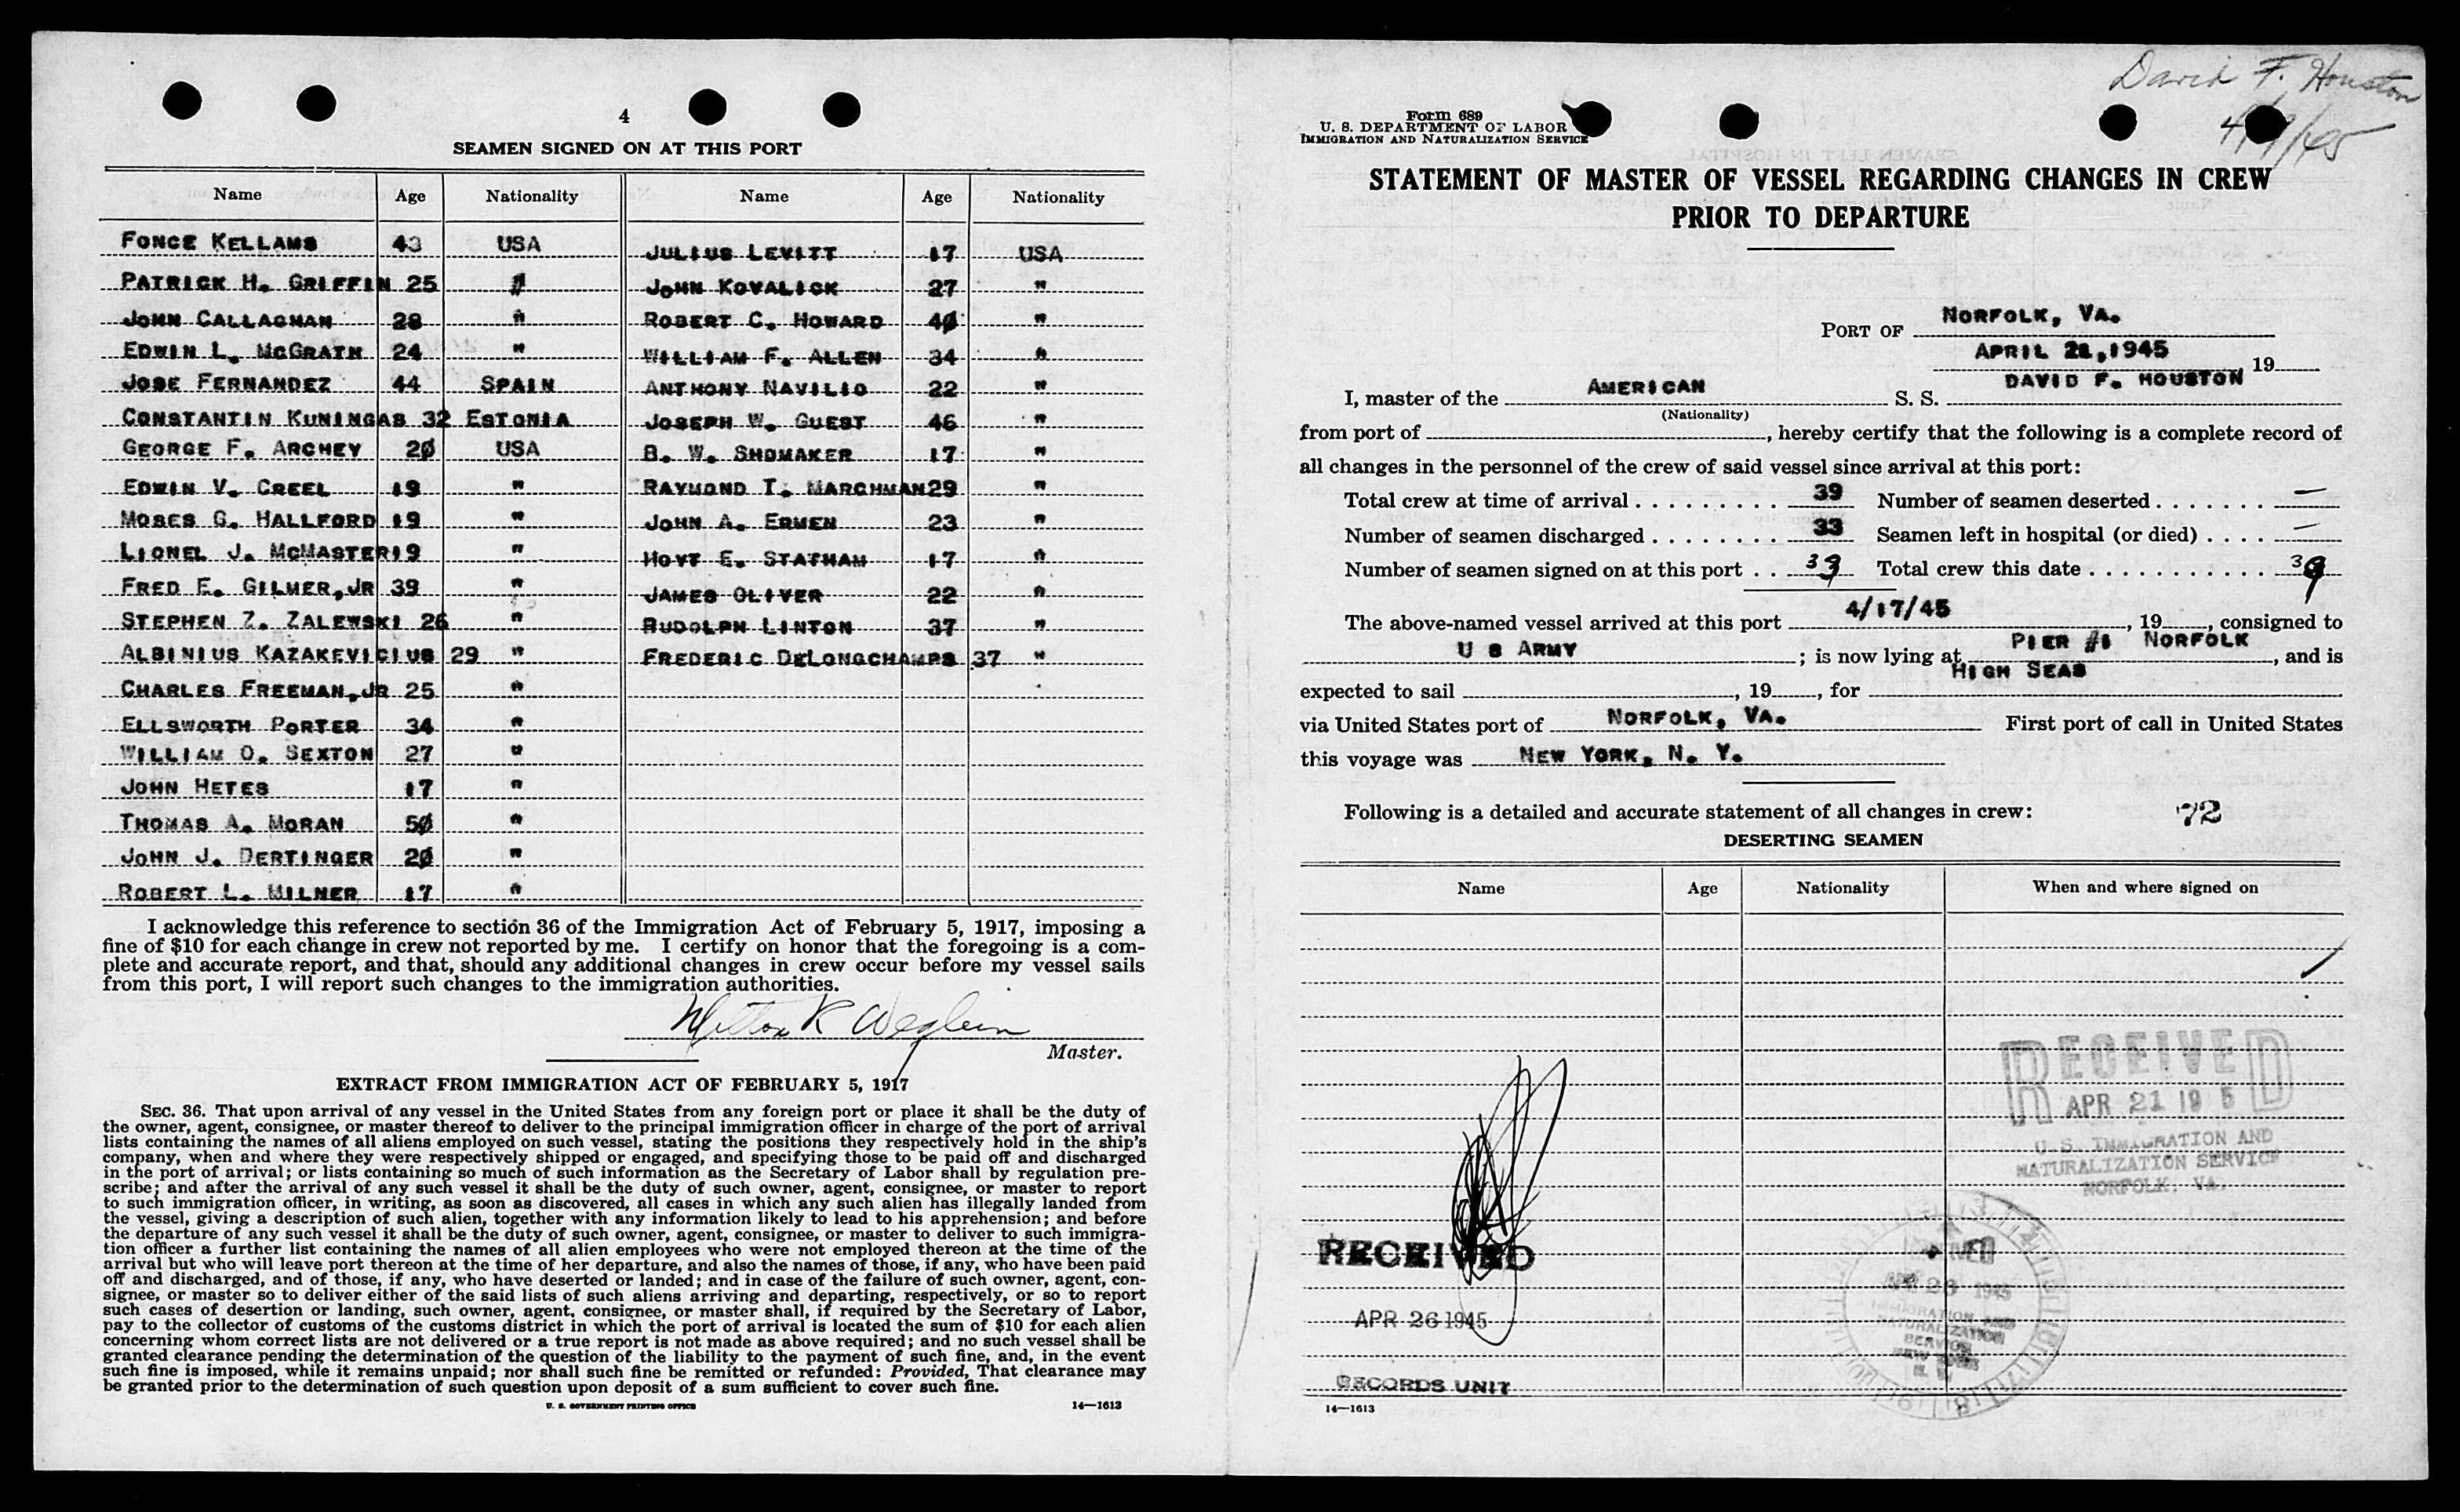 4
SEAMEN SIGNED ON AT THIS PORT
Name Age Nationality Name Age Nationality
FONCE KELLAMS 43 USA JULIUS LEVITT 17 USA
PATRICK H. GRIFFIN 25 " JOHN KOVALICK 27 "
JOHN CALLAGHAN 28 " ROBERT C. HOWARD 40 "
EDWIN L. MCGRATH 24 " WILLIAM F. ALLEN 34 "
JOSE FERNANDEZ 44 SPAIN ANTHONY NAVILIO 22 "
CONSTANTIN KUNINGAS 32 ESTONIA JOSEPH W. GUEST 46 "
GEORGE F. ARCHEY 20 USA B. W. SHOMAKER 17 "
EDWIN V. CREEL 19 " RAYMOND T. MARCHMAN 29 "
MOSES G. HALLFORD 19 " JOHN A. ERMEN 23 "
LIONEL J. MCMASTER 19 " HOYT E. STATHAM 17 "
FRED E. GILMER, JR 39 " JAMES OLIVER 22 "
STEPHEN Z. ZALEWSKI 26 " RUDOLPH LINTON 37 "
ALBINIUS KAZAKEVICIUS 29 " FREDERIC DELONGCHAMPS 37 "
CHARLES FREEMAN, JR 25 "
ELLSWORTH PORTER 34 "
WILLIAM O. SEXTON 27 "
JOHN HETES 17 "
THOMAS A. MORAN 50 "
JOHN J. DERTINGER 20 "
ROBERT L. MILNER 17 "
I acknowledge this reference to section 36 of the Immigration Act of February 5, 1917, imposing a
fine of $10 for each change in crew not reported by me. I certify on honor that the foregoing is a com-
plete and accurate report, and that, should any additional changes in crew occur before my vessel sails
from this port, I will report such changes to the immigration authorities.
Milton K Weglein
Master.
EXTRACT FROM IMMIGRATION ACT OF FEBRUARY 5, 1917
SEC. 36. That upon arrival of any vessel in the United States from any foreign port or place it shall be the duty of
the owner, agent, consignee, or master thereof to deliver to the principal immigration officer in charge of the port of arrival
lists containing the names of all aliens employed on such vessel, stating the positions they respectively hold in the ship's
company, when and where they were respectively shipped or engaged, and specifying those to be paid off and discharged
in the port of arrival; or lists containing so much of such information as the Secretary of Labor shall by regulation pre-
scribe; and after the arrival of any such vessel it shall be the duty of such owner, agent, consignee, or master to report
to such immigration officer, in writing, as soon as discovered, all cases in which any such alien has illegally landed from
the vessel, giving a description of such alien, together with any information likely to lead to his apprehension; and before
the departure of any such vessel it shall be the duty of such owner, agent, consignee, or master to deliver to such immigra-
tion officer a further list containing the names of all alien employees who were not employed thereon at the time of the
arrival but who will leave port thereon at the time of her departure, and also the names of those, if any, who have been paid
off and discharged, and of those, if any, who have deserted or landed; and in case of the failure of such owner, agent, con-
signee, or master so to deliver either of the said lists of such aliens arriving and departing, respectively, or so to report
such cases of desertion or landing, such owner, agent, consignee, or master shall, if required by the Secretary of Labor,
pay to the collector of customs of the customs district in which the port of arrival is located the sum of $10 for each alien
concerning whom correct lists are not delivered or a true report is not made as above required; and no such vessel shall be
granted clearance pending the determination of the question of the liability to the payment of such fine, and, in the event
such fine is imposed, while it remains unpaid; nor shall such fine be remitted or refunded: Provided, That clearance may
be granted prior to the determination of such question upon deposit of a sum sufficient to cover such fine.
U. S. GOVERNMENT PRINTING OFFICE 14—1613
David F. Houston
Form 689
U. S. DEPARTMENT OF LABOR
IMMIGRATION AND NATURALIZATION SERVICE
STATEMENT OF MASTER OF VESSEL REGARDING CHANGES IN CREW
PRIOR TO DEPARTURE
PORT OF NORFOLK, VA.
APRIL 21,1945 19
I, master of the AMERICAN S. S. DAVID F. HOUSTON
(Nationality)
from port of , hereby certify that the following is a complete record of
all changes in the personnel of the crew of said vessel since arrival at this port:
Total crew at time of arrival 39 Number of seamen deserted —
Number of seamen discharged 33 Seamen left in hospital (or died) —
Number of seamen signed on at this port 33 Total crew this date 39
The above-named vessel arrived at this port 4/17/45, 19 , consigned to
U S ARMY ; is now lying at PIER #1 NORFOLK, and is
expected to sail , 19 , for HIGH SEAS
via United States port of NORFOLK, VA. First port of call in United States
this voyage was NEW YORK, N. Y.
Following is a detailed and accurate statement of all changes in crew: 72
DESERTING SEAMEN
Name Age Nationality When and where signed on
RECEIVED
APR 21 19 5
U.S. IMMIGRATION AND
NATURALIZATION SERVICE
NORFOLK, VA.
RECEIVED
APR 26 1945
RECORDS UNIT
APR 26 1945
IMMIGRATION AND
NATURALIZATION
SERVICE
NEW YORK
N. Y.
14—1613